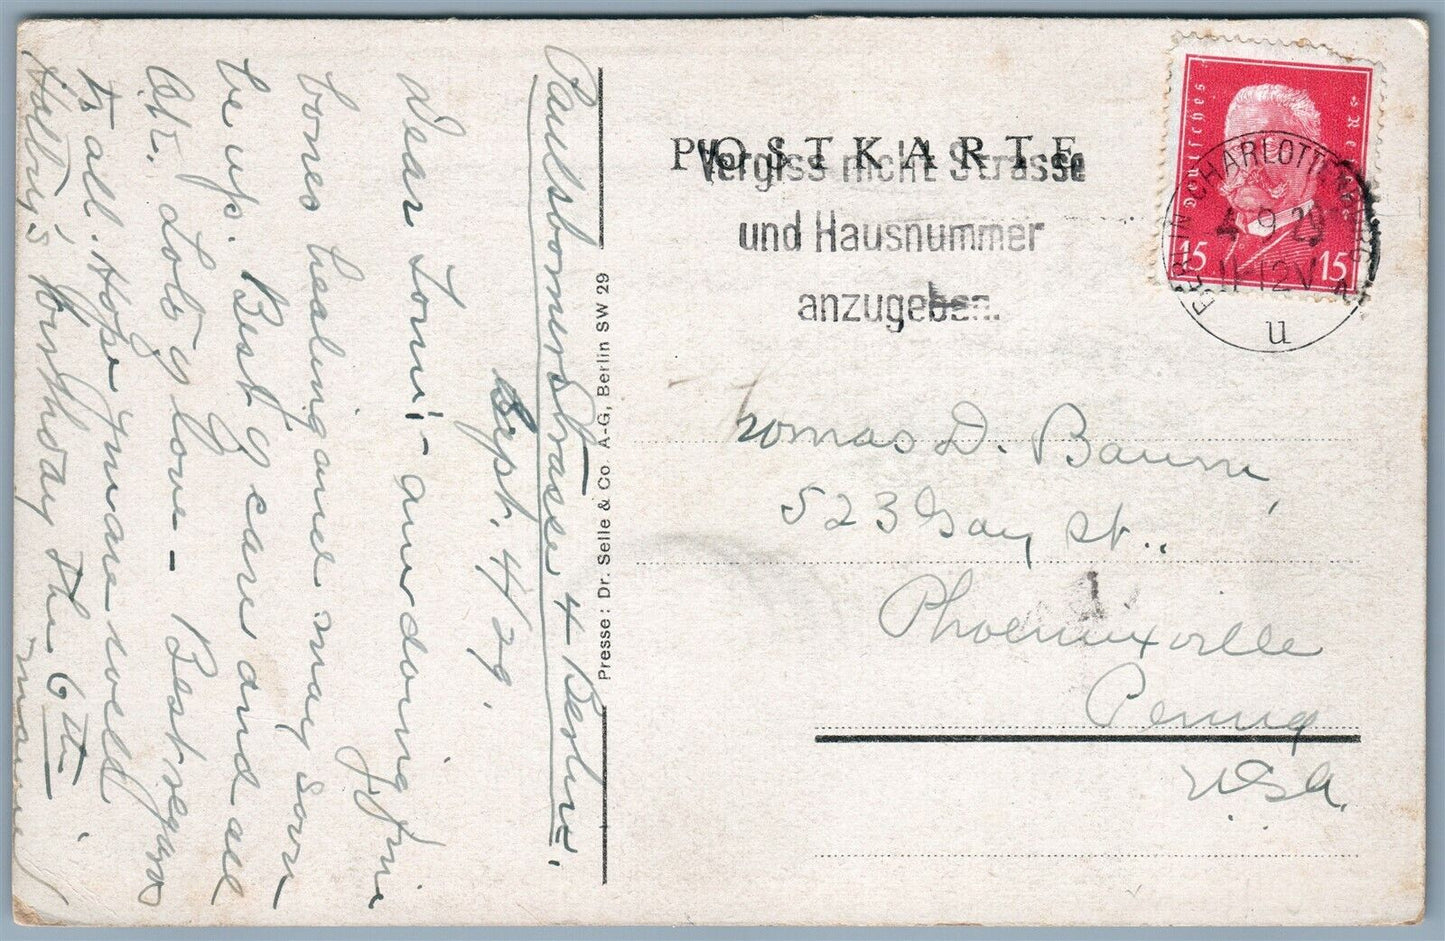 Paulsbornerstrasse 4 Berlin.
Sept. 4/29.
Dear Tomi - am doing fine
bones healing and may soon
be up. Best of care and all
att. Lots of love - Best regards
to all. Hope you are well
Hatty's birthday the 6th
Presse: Dr. Selle & Co. A-G, Berlin SW 29
POSTKARTE
Vergiss nicht Strasse
und Hausnummer
anzugeben.
Deutsches Reich
15 15
BERLIN-CHARLOTTENBURG
4.9.29
11-12V
u
Thomas D. Baum,
523 Gay St..
Phoenixville
Penna
USA.